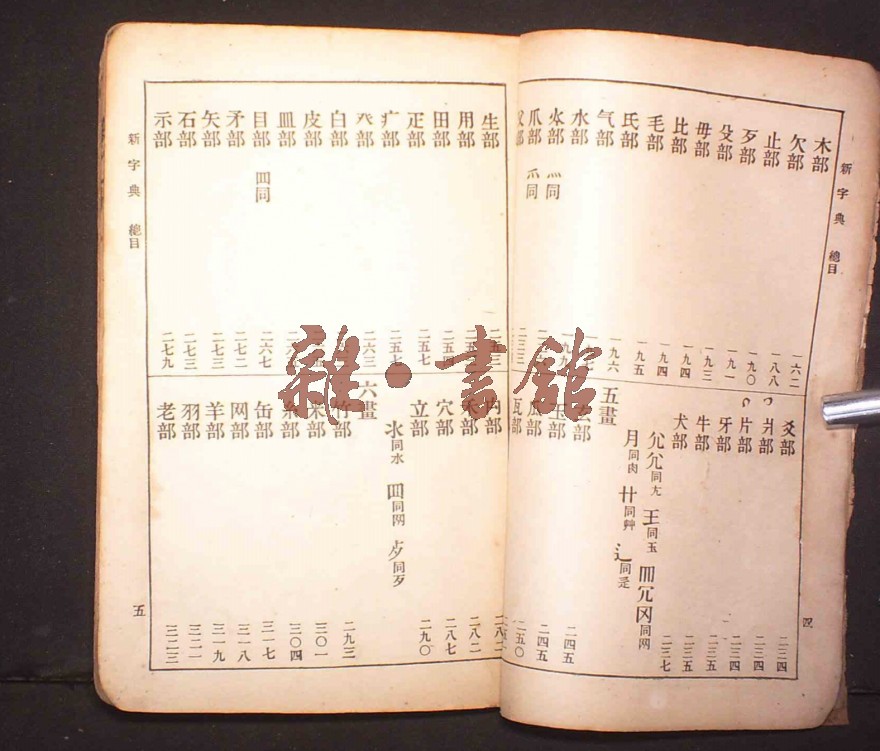 新字典 總目
木部 一六二
欠部 一八八
止部 一九〇
歹部 一九一
殳部 一九三
毋部 一九四
比部 一九四
毛部 一九五
氏部 一九六
气部
水部
火部 灬同
爪部 爫同
爻部 二三四
爿部 二三四
片部 二三四
牙部 二三五
牛部 二三五
犬部 二三七
尣尢同尢 王同玉 罒冗冈同网
月同肉 廾同艸 辶同辵
五畫
玄部 二四五
玉部 二四五
瓜部 二五〇
瓦部
四
雜·書館
生部
用部
田部 二五四
疋部 二五七
疒部 二五七
癶部 二六三
白部
皮部
皿部
目部 罒同 二六七
矛部 二七二
矢部 二七三
石部 二七三
示部 二七九
禸部
禾部 二八二
穴部 二八七
立部 二九〇
氺同水 罒同网 歺同歹
六畫
竹部 二九三
米部 三〇一
糸部 三〇四
缶部 三一七
网部 三一八
羊部 三一九
羽部 三二一
老部 三二三
新字典 總目
五